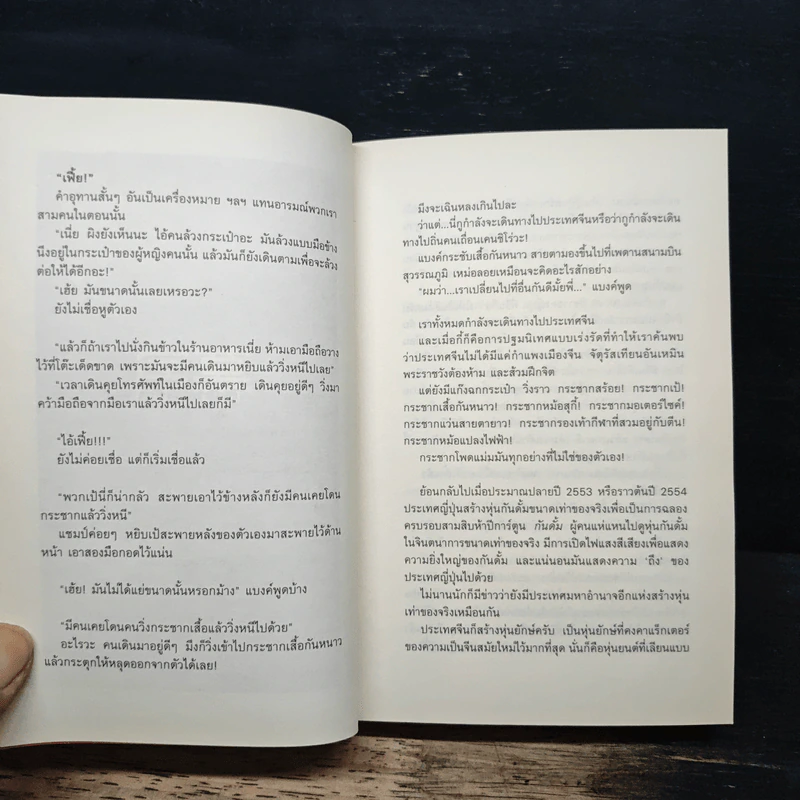 "เฟี้ย!"
คำอุทานสั้นๆ อันเป็นเครื่องหมาย ฯลฯ แทนอารมณ์พวกเรา
สามคนในตอนนั้น
"เนี่ย ผิงยังเห็นนะ ไอ้คนล้วงกระเป๋าอะ มันล้วงแบบมือข้าง
นึงอยู่ในกระเป๋าของผู้หญิงคนนั้น แล้วมันก็ยังเดินตามเพื่อจะล้วง
ต่อให้ได้อีกอะ!"
"เฮ้ย มันขนาดนั้นเลยเหรอวะ?"
ยังไม่เชื่อหูตัวเอง
"แล้วก็ถ้าเราไปนั่งกินข้าวในร้านอาหารเนี่ย ห้ามเอามือถือวาง
ไว้ที่โต๊ะเด็ดขาด เพราะมันจะมีคนเดินมาหยิบแล้ววิ่งหนีไปเลย"
"เวลาเดินคุยโทรศัพท์ในเมืองก็อันตราย เดินคุยอยู่ดีๆ วิ่งมา
คว้ามือถือจากมือเราแล้ววิ่งหนีไปเลยก็มี"
"ไอ้เฟี้ย!!!"
ยังไม่ค่อยเชื่อ แต่ก็เริ่มเชื่อแล้ว
"พวกเป้นี่ก็น่ากลัว สะพายเอาไว้ข้างหลังก็ยังมีคนเคยโดน
กระชากแล้ววิ่งหนี"
แชมป์ค่อยๆ หยิบเป้สะพายหลังของตัวเองมาสะพายไว้ด้าน
หน้า เอาสองมือกอดไว้แน่น
"เฮ้ย! มันไม่ได้แย่ขนาดนั้นหรอกม้าง" แบงค์พูดบ้าง
"มีคนเคยโดนคนวิ่งกระชากเสื้อแล้ววิ่งหนีไปด้วย"
อะไรวะ คนเดินมาอยู่ดีๆ มึงก็วิ่งเข้าไปกระชากเสื้อกันหนาว
แล้วกระตุกให้หลุดออกจากตัวได้เลย!
มึงจะเฉินหลงเกินไปละ
ว่าแต่...นี่กูกำลังจะเดินทางไปประเทศจีนหรือว่ากูกำลังจะเดิน
ทางไปถิ่นคนเถื่อนเคนชิโร่วะ
แบงค์กระชับเสื้อกันหนาว สายตามองขึ้นไปที่เพดานสนามบิน
สุวรรณภูมิ เหม่อลอยเหมือนจะคิดอะไรสักอย่าง
"ผมว่า...เราเปลี่ยนไปที่อื่นกันดีมั้ยพี่..." แบงค์พูด
เราทั้งหมดกำลังจะเดินทางไปประเทศจีน
และเมื่อกี้ก็คือการปฐมนิเทศแบบเร่งรัดที่ทำให้เราค้นพบ
ว่าประเทศจีนไม่ได้มีแค่กำแพงเมืองจีน จัตุรัสเทียนอันเหมิน
พระราชวังต้องห้าม และส้วมฝึกจิต
แต่ยังมีแก๊งฉกกระเป๋า วิ่งราว กระชากสร้อย! กระชากเป้!
กระชากเสื้อกันหนาว! กระชากหม้อสุกี้! กระชากมอเตอร์ไซค์!
กระชากแว่นสายตายาว! กระชากรองเท้ากีฬาที่สวมอยู่กับตีน!
กระชากหม้อแปลงไฟฟ้า!
กระชากโพดแม่มมันทุกอย่างที่ไม่ใช่ของตัวเอง!
ย้อนกลับไปเมื่อประมาณปลายปี 2553 หรือราวต้นปี 2554
ประเทศญี่ปุ่นสร้างหุ่นกันดั้มขนาดเท่าของจริงเพื่อเป็นการฉลอง
ครบรอบสามสิบห้าปีการ์ตูน กันดั้ม ผู้คนแห่แหนไปดูหุ่นกันดั้ม
ในจินตนาการขนาดเท่าของจริง มีการเปิดไฟแสงสีเสียงเพื่อแสดง
ความยิ่งใหญ่ของกันดั้ม และแน่นอนมันแสดงความ 'ถึง' ของ
ประเทศญี่ปุ่นไปด้วย
ไม่นานนักก็มีข่าวว่ายังมีประเทศมหาอำนาจอีกแห่งสร้างหุ่น
เท่าของจริงเหมือนกัน
ประเทศจีนก็สร้างหุ่นยักษ์ครับ เป็นหุ่นยักษ์ที่คงคาแร็กเตอร์
ของความเป็นจีนสมัยใหม่ไว้มากที่สุด นั่นก็คือหุ่นยนต์ที่เลียนแบบ